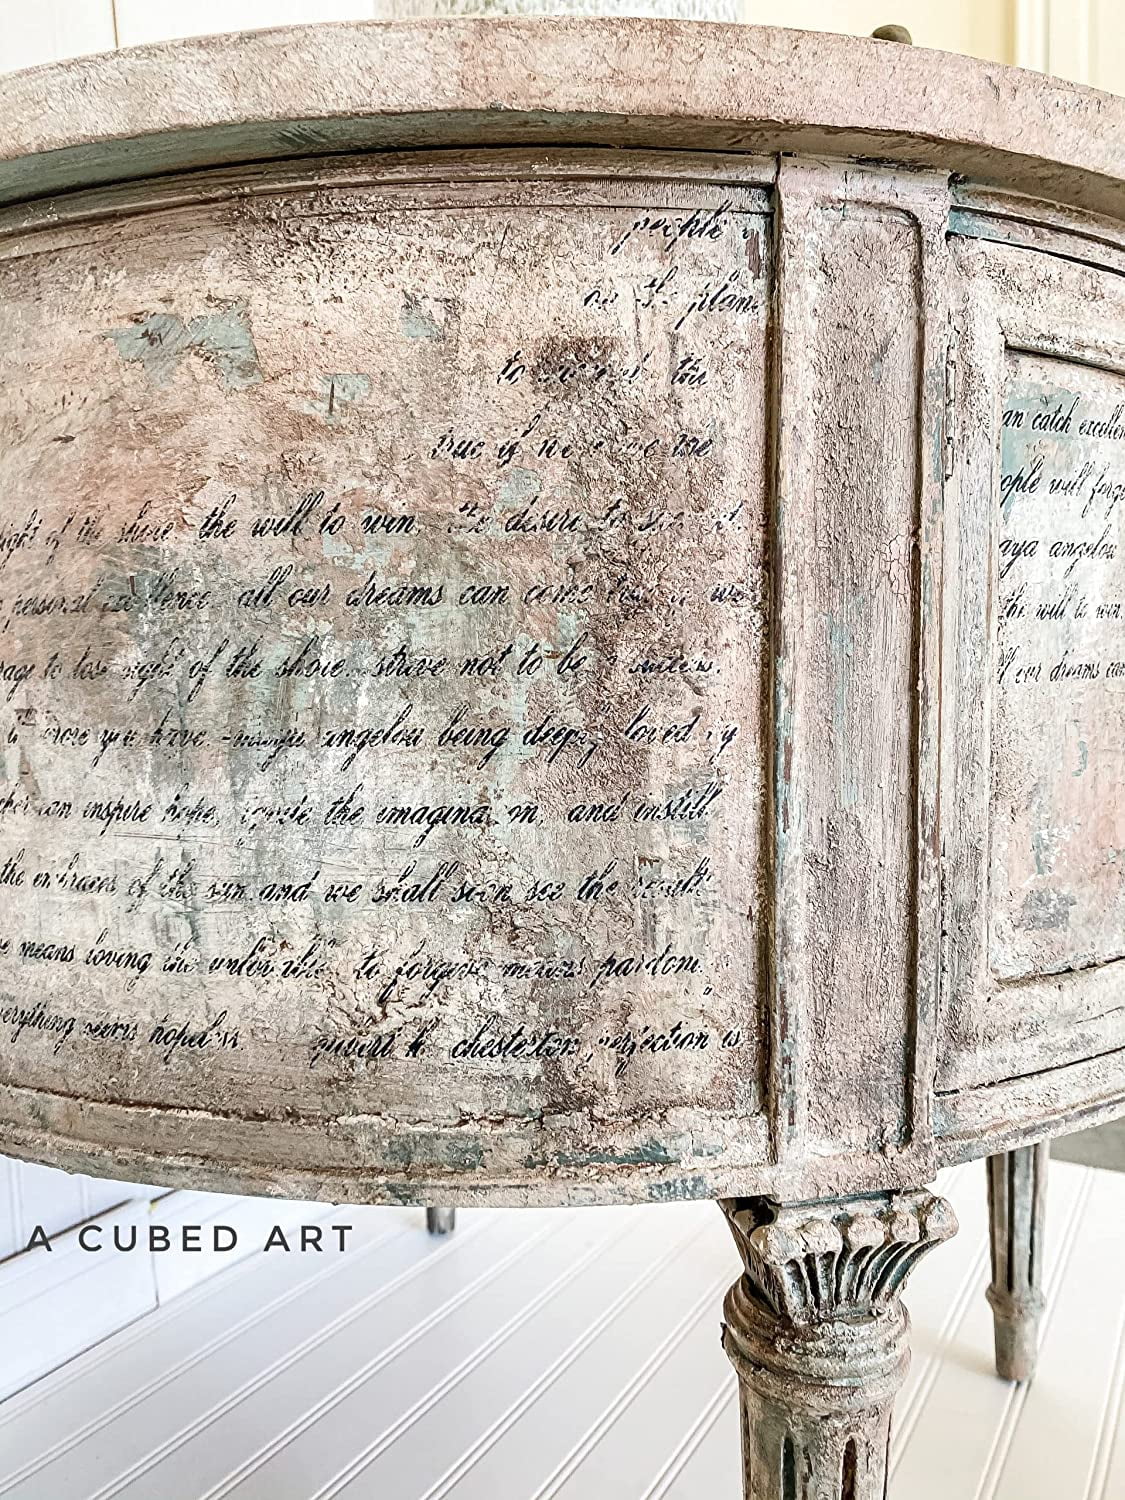 people
on the plane
to
true if we
sight of the shore. the will to win. the desire to
personal excellence. all our dreams can come true if we
to lose sight of the shore. strive not to be a success.
to more you have. -maya angelou being deeply loved by
can inspire hope, ignite the imagination, and instill
the embraces of the sun and we shall soon see the results
means loving the unlovable. to forgive means pardon
everything seems hopeless. gilbert k. chesterton perfection is
an catch excellen
ople will forge
aya angelou
the will to win.
ll our dreams can
A CUBED ART